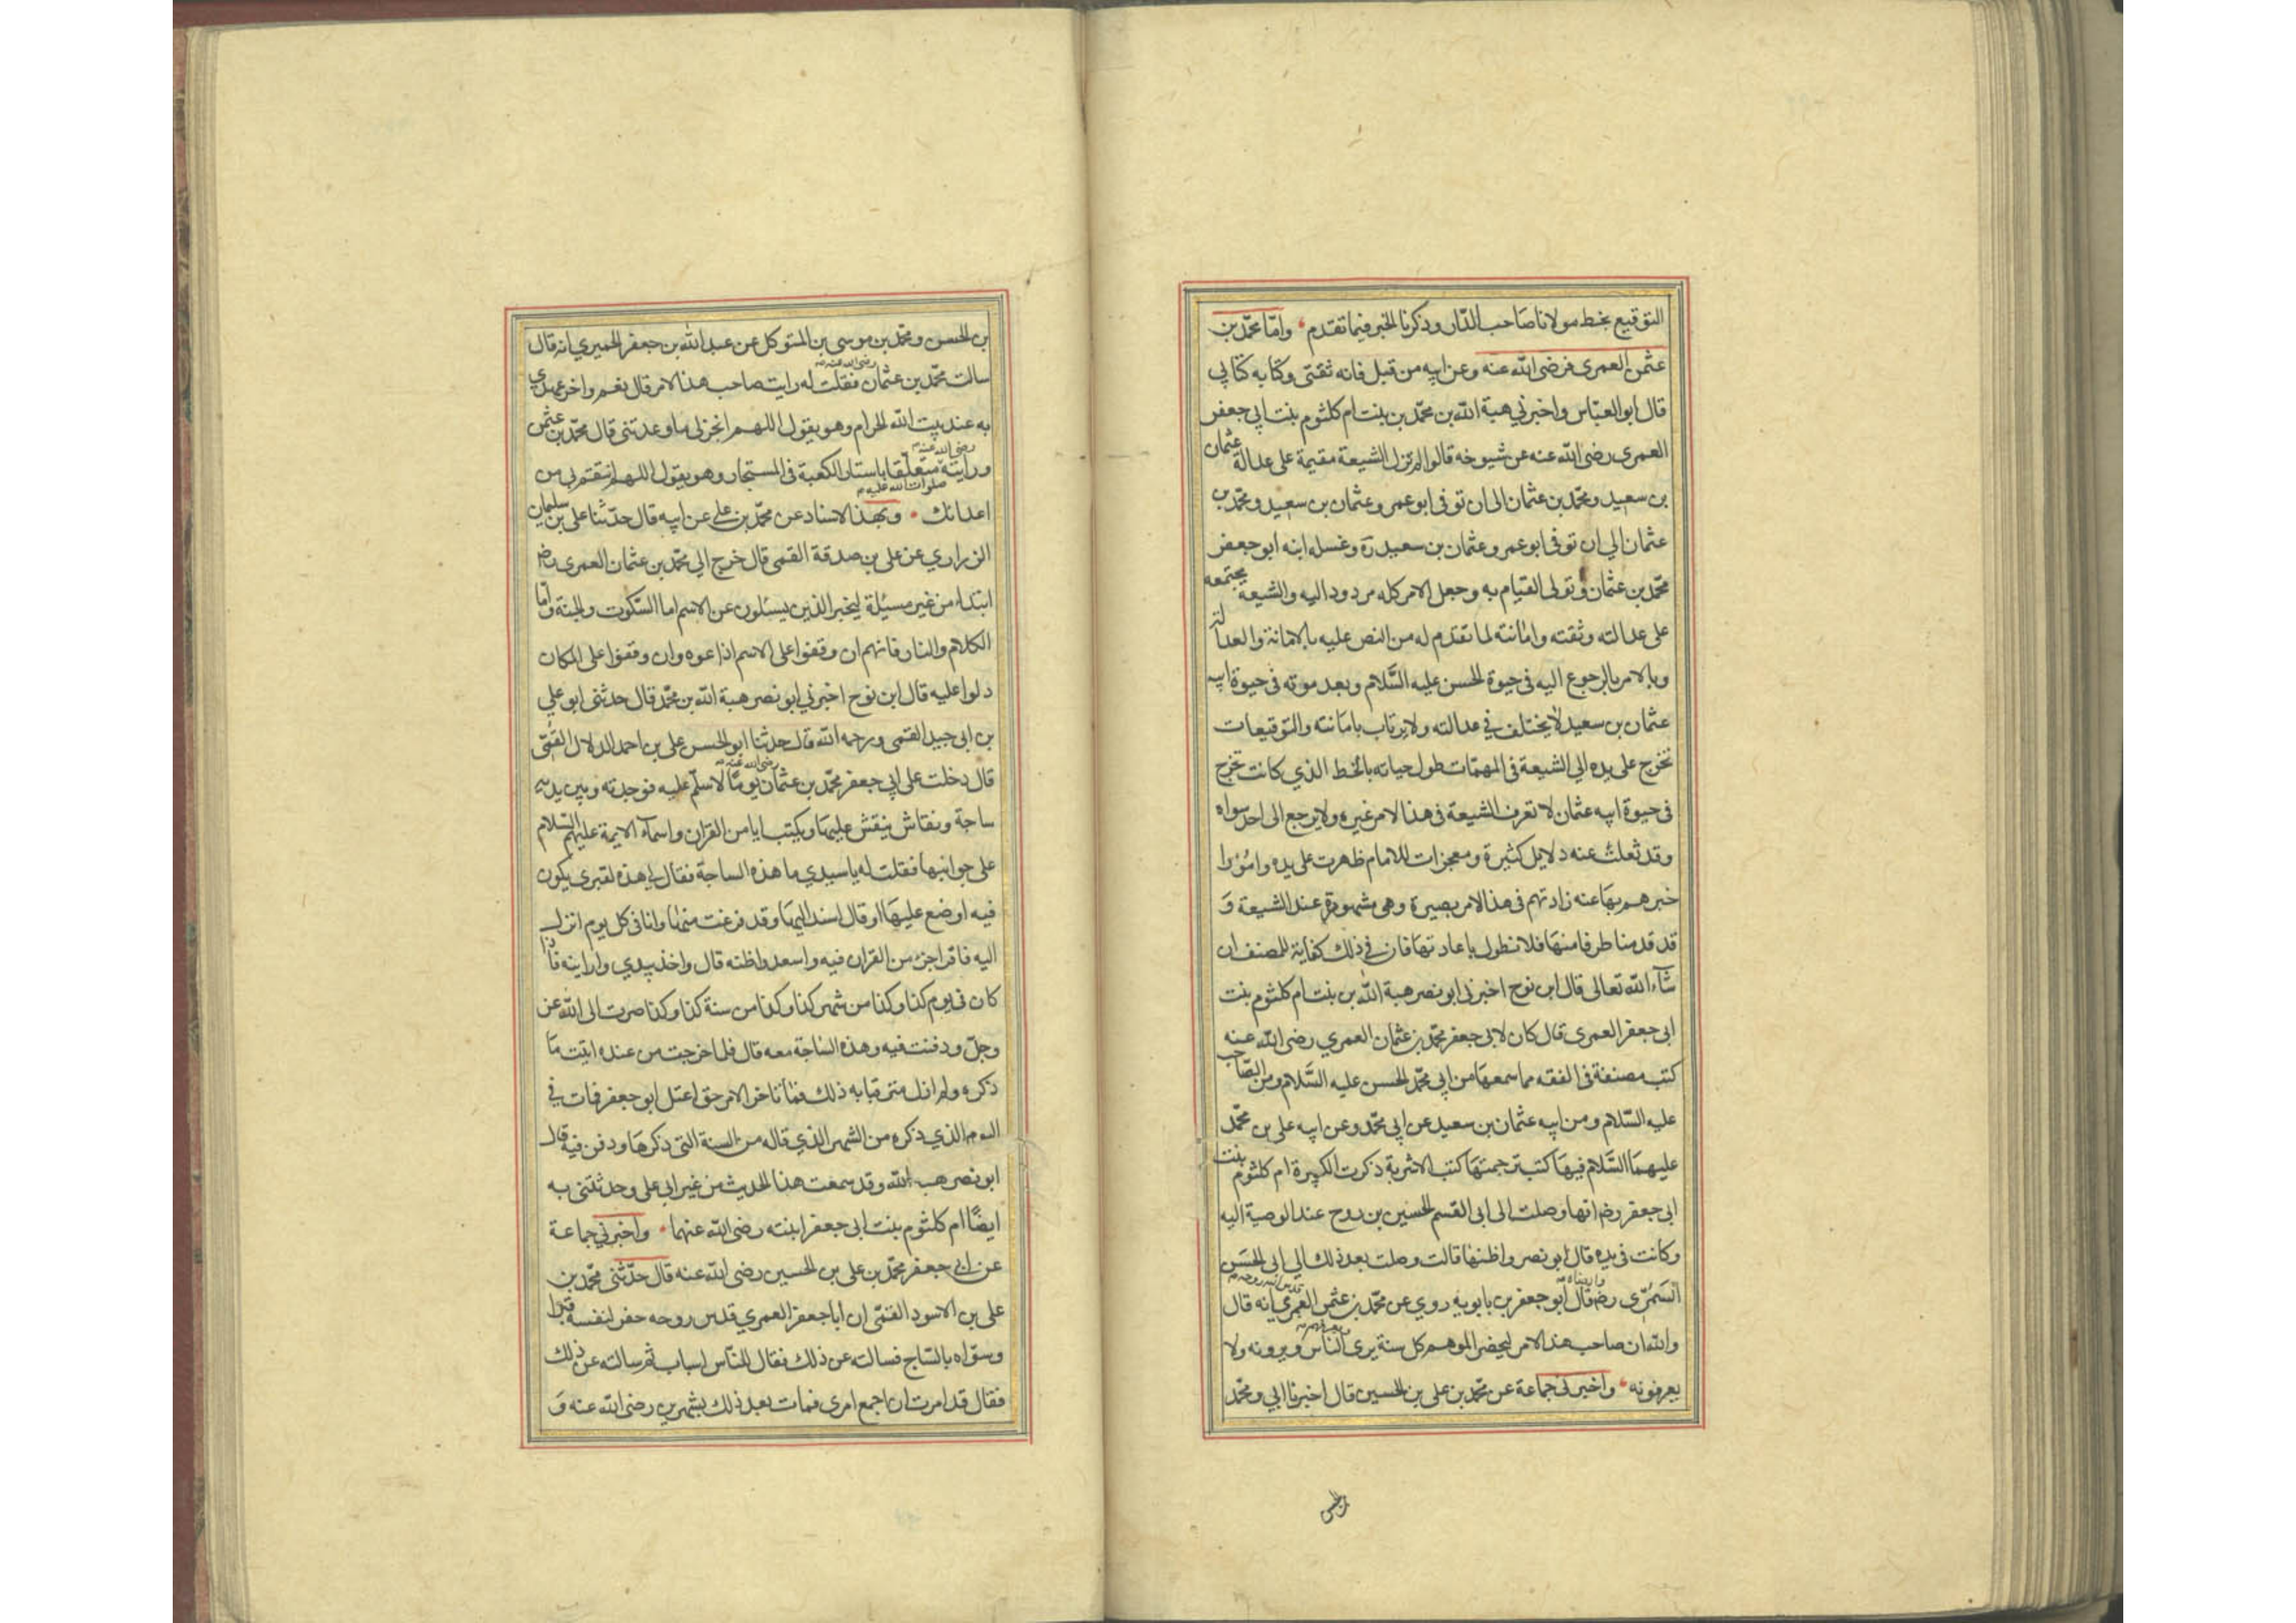 التوقيع بخط مولانا صاحب الدار وذكرنا الخبر فيما تقدم وامّا محمّد بن
عثمن العمرى فرضى الله عنه وعن ابيه من قبل فانه ثقتى وكتابه كتابي
قال ابو العبّاس واخبرني هبة الله بن محمّد بن بنت ام كلثوم بنت ابي جعفر
العمرى رضى الله عنه عن شيوخه قالوا لم تزل الشيعة مقيمة على عدالة عثمان
بن سعيد ومحمّد بن عثمان الى ان توفى ابو عمرو عثمان بن سعيد ومحمّد بن
عثمان الي ان توفى ابو عمرو عثمان بن سعيد ره وغسله ابنه ابو جعفر
محمّد بن عثمان وتولى القيام به وجعل الامر كله مردودا اليه والشيعة مجتمعه
على عدالته وثقته وامانته لما تقدم له من النص عليه بالامانة والعدالة
وبالامر بالرجوع اليه فى حيوة الحسن عليه السّلام وبعد موته فى حيوة ابيه
عثمان بن سعيد لا يختلف في عدالته ولا يرتاب بامانته والتوقيعات
تخرج على يده الي الشيعة فى المهمّات طول حياته بالخط الذي كانت تخرج
فى حيوة ابيه عثمان لا تعرف الشيعة فى هذا الامر غيره ولا يرجع الى احد سواه
وقد نقلت عنه دلايل كثيرة ومعجزات للامام ظهرت على يده وامورا
خبرهم بها عنه زادتهم فى هذا الامر بصيرة وهى مشهورة عند الشيعة و
قد قدمنا طرفا منها فلا نطول باعادتها فان في ذلك كفاية للمصنف ان
شآء الله تعالى قال ابن نوح اخبرنى ابو نصر هبة الله بن بنت ام كلثوم بنت
ابى جعفر العمرى قال كان لابى جعفر محمّد بن عثمان العمري رضى الله عنه
كتب مصنفة فى الفقه مما سمعها من ابي محمّد الحسن عليه السّلام ومن الصّاحب
عليه السّلام ومن ابيه عثمان بن سعيد عن ابي محمّد وعن ابيه على بن محمّد
عليهما السّلام فيها كتب ترجمتها كتب الاشربة ذكرت الكبيرة ام كلثوم بنت
ابى جعفر رضه انها وصلت الى ابى القسم الحسين بن روح عند الوصية اليه
وكانت فى يده قال ابو نصر واظنها قالت وصلت بعد ذلك الي ابى الحسن
السّمرّى رضه قال ابو جعفر بن بابويه روي عن محمّد بن عثمن العمري انه قال
والله ان صاحب هذا الامر ليحضر الموسم كل سنة يرى الناس ويعرفهم ويرونه ولا
يعرفونه واخبرنى جماعة عن محمّد بن على بن الحسين قال اخبرنا ابي ومحمّد
بن الحسن
بن الحسن ومحمّد بن موسى بن المتوكل عن عبد الله بن جعفر الحميري انه قال
سالت محمّد بن عثمان رضى الله عنه فقلت له رايت صاحب هذا الامر قال نعم واخر عهدي
به عند بيت الله الحرام وهو يقول اللهم انجز لى ما وعدتنى قال محمّد بن عثمن
رضى الله عنه ورايته صلوات الله عليه متعلّقا باستار الكعبة فى المستجار وهو يقول اللهم انتقم لى من
اعدائك وبهذا الاسناد عن محمّد بن على عن ابيه قال حدّثنا على بن سليمان
الزراري عن على بن صدقة القمى قال خرج الي محمّد بن عثمان العمرى رضه
ابتداء من غير مسيلة ليخبر الذين يسئلون عن الاسم اما السّكوت والجنة وامّا
الكلام والنار فانهم ان وقفوا على الاسم اذاعوه وان وقفوا على المكان
دلوا عليه قال ابن نوح اخبرني ابو نصر هبة الله بن محمّد قال حدثنى ابو علي
بن ابى جيد القمى ورحمه الله قال حدثنا ابو الحسن على بن احمد الدلال القمّى
قال دخلت على ابي جعفر محمّد بن عثمان رضى الله عنه يومًا لاسلّم عليه فوجدته وبين يديه
ساجة ونقاش ينقش عليها ويكتب ايا من القران واسمآء الايمة عليهم السّلام
على جوانبها فقلت له يا سيدي ما هذه الساجة فقال لي هذه لقبرى يكون
فيه اوضع عليها او قال اسند اليها وقد فرغت منها وانا فى كل يوم انزل
اليه فاقرا جزء من القران فيه واسعد واظنه قال واخذ بيدي وارانيه فاذا
كان فى يوم كذا وكذا من شهر كذا وكذا من سنة كذا وكذا صرت الى الله عز
وجلّ ودفنت فيه وهذه الساجة معه قال فلما خرجت من عنده اثبت ما
ذكره ولم ازل مترقبا به ذلك فما تاخر الامر حتى اعتل ابو جعفر فمات في
اليوم الذي ذكره من الشهر الذي قاله من السنة التى ذكرها ودفن فيه قال
ابو نصر هبة الله وقد سمعت هذا الحديث من غير ابى على وحدثتنى به
ايضًا ام كلثوم بنت ابى جعفر ابنته رضى الله عنهما واخبرني جماعة
عن ابى جعفر محمّد بن على بن الحسين رضى الله عنه قال حدّثنى محمّد بن
على بن الاسود القمّى ان ابا جعفر العمري قدس روحه حفر لنفسه قبرا
وسوّاه بالسّاج فسالته عن ذلك فقال للنّاس اسباب ثم سالته عن ذلك
فقال قد امرت ان اجمع امرى فمات بعد ذلك بشهرين رضى الله عنه و